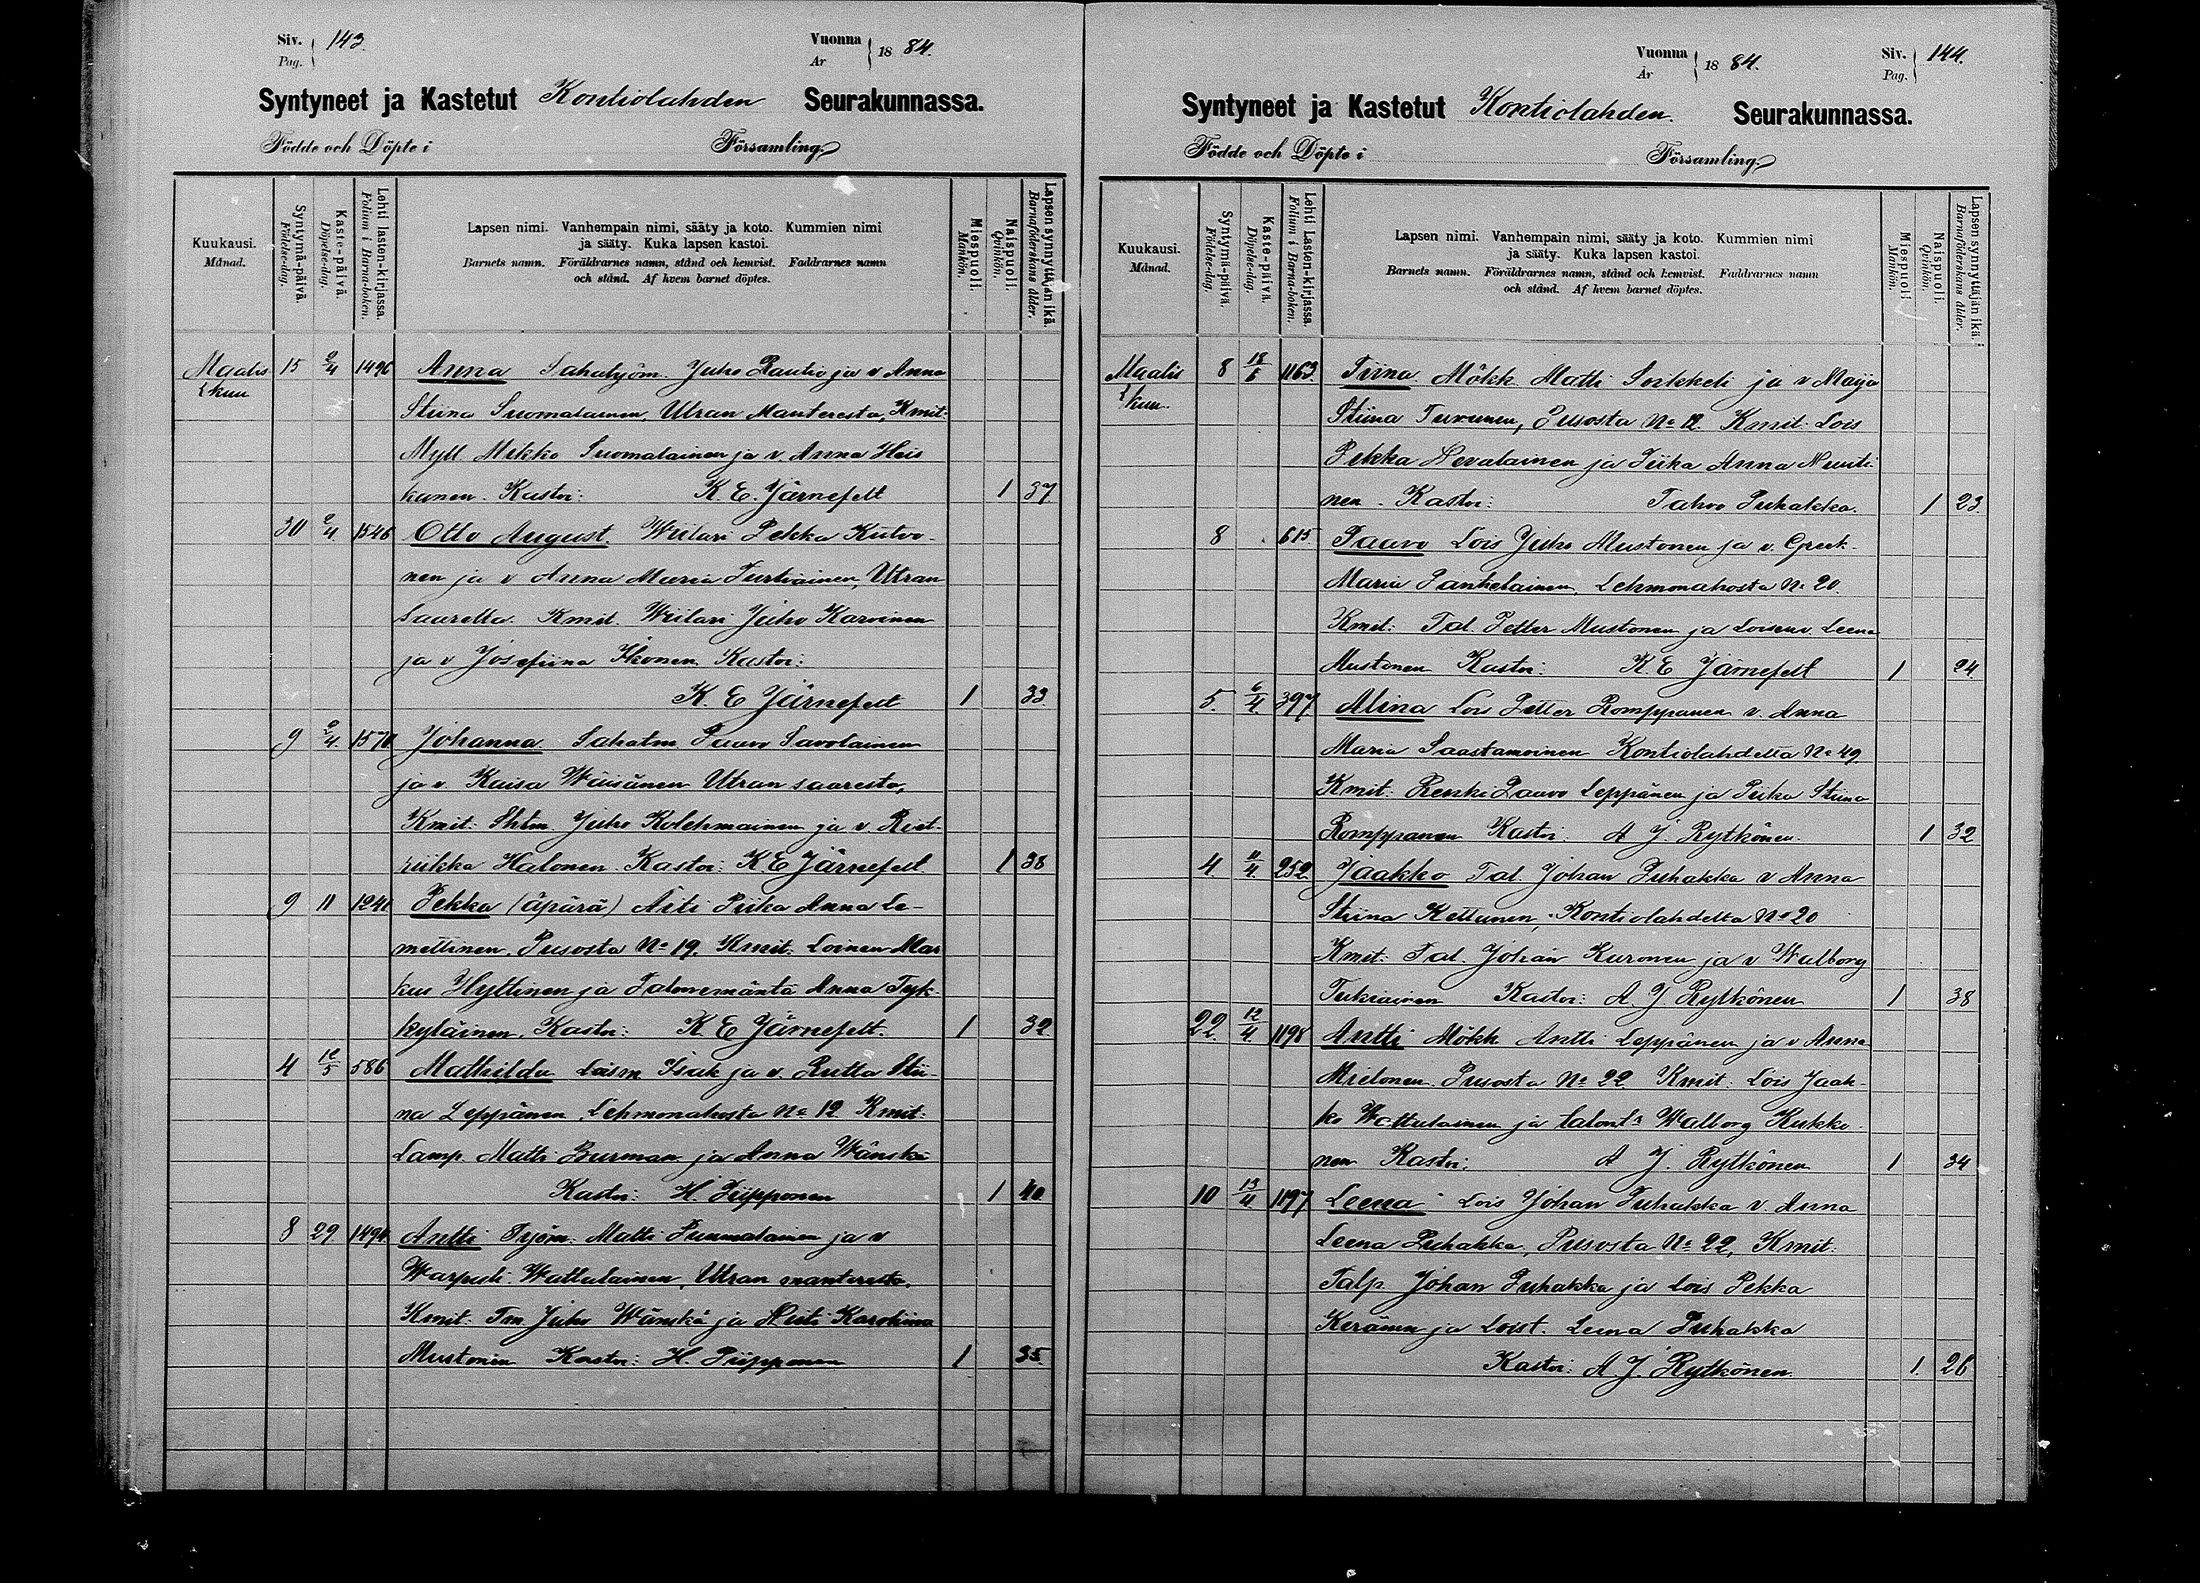 Siv. 143.
Pag.
Vuonna 1884.
År
Syntyneet ja Kastetut Kontiolahden Seurakunnassa.
Födde och Döpte i Församling.
Kuukausi. Månad.
Syntymä-päivä. Födelse-dag.
Kaste-päivä. Döpelse-dag.
Lehti lasten-kirjassa. Folium i Barna-boken.
Lapsen nimi. Vanhempain nimi, sääty ja koto. Kummien nimi
ja sääty. Kuka lapsen kastoi.
Barnets namn. Föräldrarnes namn, stånd och hemvist. Faddrarnes namn
och stånd. Af hvem barnet döptes.
Miespuoli. Mankön.
Naispuoli. Qvinkön.
Lapsen synnyttäjän ikä. Barnaföderskans ålder.
Maalis 15 2/4 1496 Anna Sahatyöm. Juho Rautio ja v Anna
kuu Stiina Suomalainen, Utran Manteresta, Kmit:
Myll Mikko Suomalainen ja v. Anna Heis
kanen. Kastoi: K. E. Järnefelt 1 37
30 2/4 1546 Otto August. Wiilari Pekka Kutvo-
nen ja v Anna Maria Turtiainen, Utran
saarella. Kmit. Wiilari Juho Karvinen
ja v Josefiina Ikonen Kastoi:
K. E Järnefelt 1 33
9 2/4 1570 Johanna Sahatm Paavo Savolainen
ja v. Kaisa Wäisänen Utran saaresta,
Kmit: Shtm Juho Kolehmainen ja v. Reet-
riikka Halonen. Kastoi: K. E Järnefelt. 1 38
9 11 1240 Pekka (äpärä) Äiti Piika Anna Le-
mettinen. Pusosta No 19. Kmit: Loinen Mar
kus Hyttinen ja Talonemäntä Anna Tyk-
kyläinen. Kastoi: K E Järnefelt. 1 32
4 12/5 586 Mathilda Loism Isak ja v. Rutta Stii-
na Leppänen, Lehmonahosta No 12 Kmit:
Lamp. Matti Burman ja Anna Wänskä
Kastoi: H. Piipponen 1 40
8 29 1494 Antti Työm: Matti Puumalainen ja v
Warpuli Wattulainen, Utran manterella.
Kmit. Tm Juho Wänskä ja Neiti Karoliina
Mustonen Kastoi: H. Piipponen 1 35
Vuonna 1884.
År
Siv. 144.
Pag.
Syntyneet ja Kastetut Kontiolahden. Seurakunnassa.
Födde och Döpte i Församling.
Kuukausi. Månad.
Syntymä-päivä. Födelse-dag.
Kaste-päivä. Döpelse-dag.
Lehti Lasten-kirjassa. Folium i Barna-boken.
Lapsen nimi. Vanhempain nimi, sääty ja koto. Kummien nimi
ja sääty. Kuka lapsen kastoi.
Barnets namn. Föräldrarnes namn, stånd och hemvist. Faddrarnes namn
och stånd. Af hvem barnet döptes.
Miespuoli. Mankön.
Naispuoli. Qvinkön.
Lapsen synnyttäjän ikä. Barnaföderskans ålder.
Maalis 8 18/5 1163 Tiina Mökk. Matti Soikkeli ja v Maija
kuu. Stiina Turunen, Pusosta No 12. Kmit. Lois
Pekka Nevalainen ja Piika Anna Nuuti
nen. Kastoi: Tahvo Puhakka. 1 23
8 615 Paavo Lois Juho Mustonen ja v. Greet-
Maria Pankelainen, Lehmonahosta No 20.
Kmit: Tal. Petter Mustonen ja Leena
Mustonen Kastoi: K. E Järnefelt 1 24
5. 6/4. 397 Miina Lois Petter Romppanen v. Anna
Maria Saastamoinen Kontiolahdella No 49
Kmit: Renki Paavo Leppänen ja Piika Stiina
Romppanen Kastoi: A J. Rytkönen. 1 32
4. 11/4. 252 Jaakko Tal. Johan Puhakka v Anna
Stiina Kettunen, Kontiolahdella No 20
Kmit: Tal. Johan Kuronen ja v Walborg
Tukiainen Kastoi: A. J Rytkönen 1 38
22. 12/4. 1198 Antti Mökk Antti Leppänen ja v Anna
Mielonen. Pusosta No 22 Kmit: Lois Jaak-
ko Wattulainen ja talont: Walborg Kukko
nen Kastoi: A J. Rytkönen 1 34
10 13/4 1197 Leena Lois Johan Puhakka v. Anna
Leena Puhakka, Pusosta No 22, Kmit:
Talp. Johan Puhakka ja Lois Pekka
Keränen ja Loist. Leena Puhakka
Kastoi: A. J. Rytkönen. 1. 26